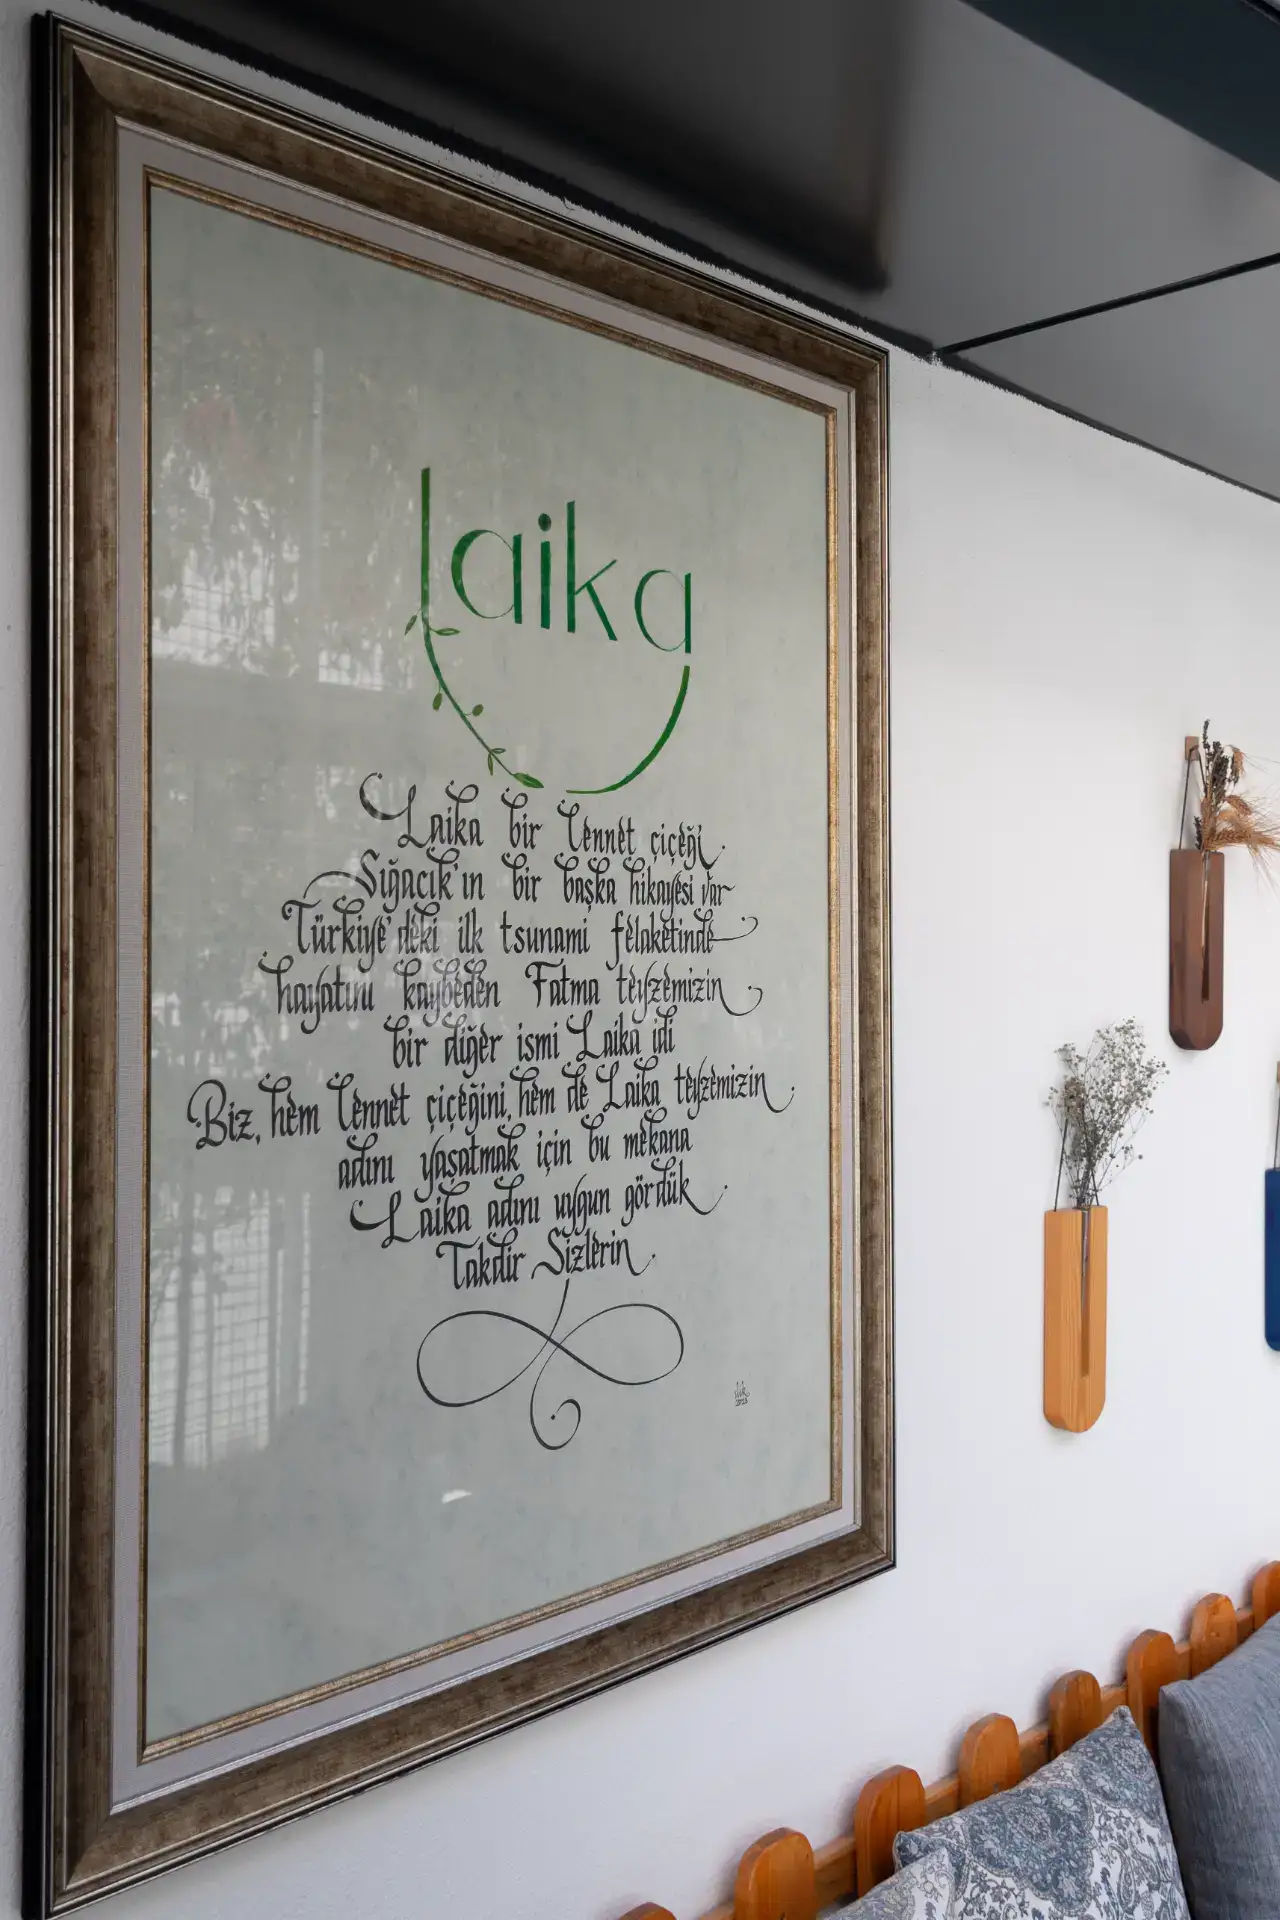 laika
Laika bir Cennet çiçeği
Sığacık'ın bir başka hikayesi var
Türkiye'deki ilk tsunami felaketinde
hayatını kaybeden Fatma teyzemizin
bir diğer ismi Laika idi
Biz, hem Cennet çiçeğini, hem de Laika teyzemizin
adını yaşatmak için bu mekana
Laika adını uygun gördük
Takdir Sizlerin